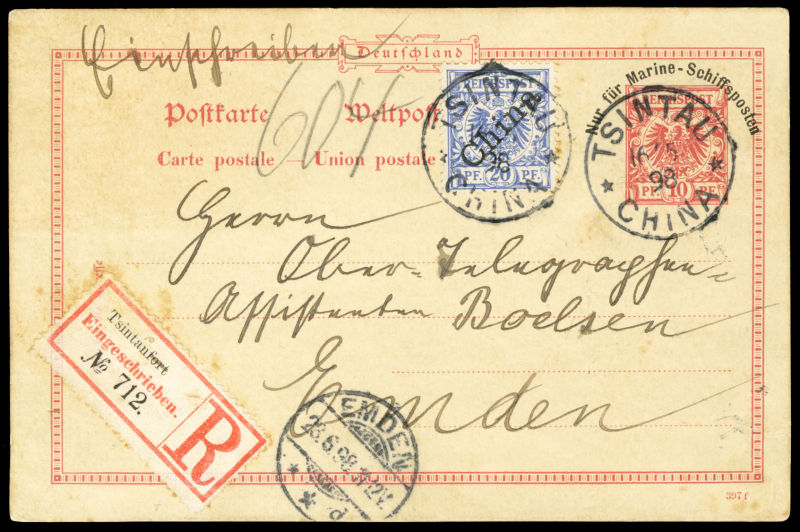 Einschreiben
Deutschland
Nur für Marine-Schiffsposten
Postkarte Weltpost
Carte postale — Union postale
604
REICHSPOST
China
PF. 20 PF.
TSINTAU
98
CHINA
REICHSPOST
PF. 10 PF.
TSINTAU
16/5
98
CHINA
Herrn
Ober-Telegraphen-
Assistenten Boelsen
Emden
Tsintanfort
Eingeschrieben.
№ 712.
R
EMDEN
28.6.98
397 f